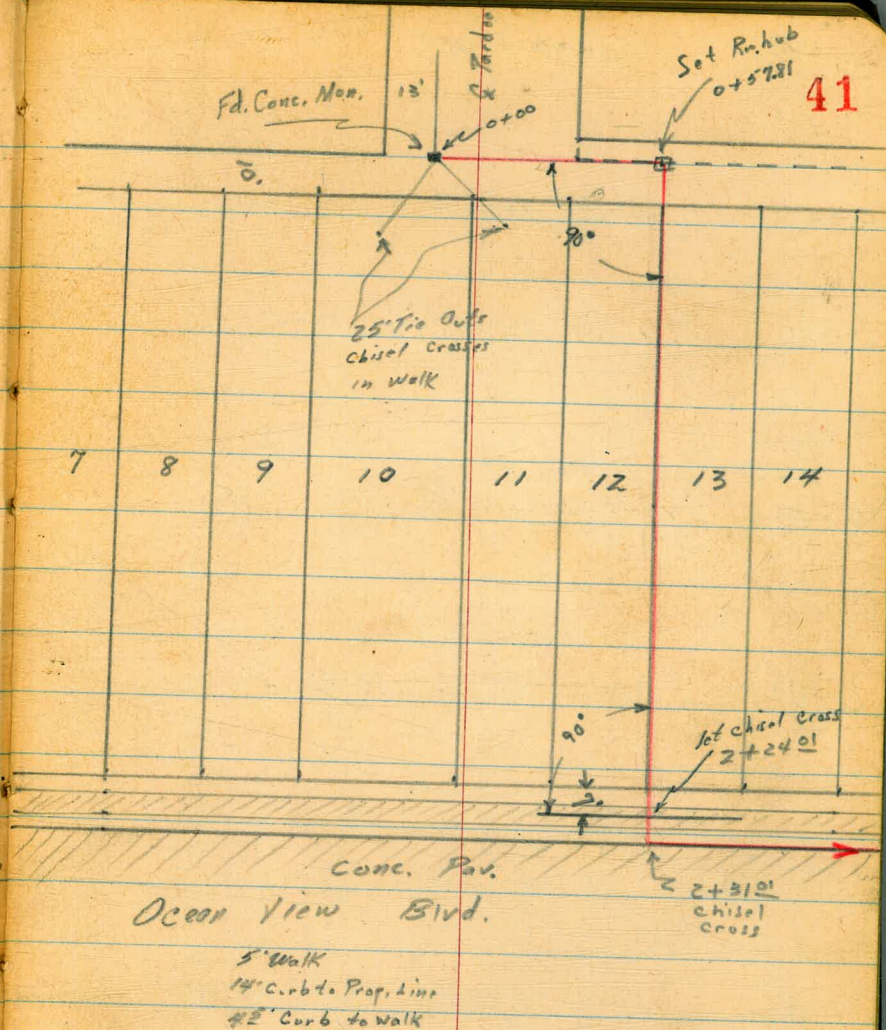 41
Set Rn. hub
0+57.81
Fd. Conc. Mon.
13'
0+00
90°
25' Tie Outs
Chisel Crosses
in Walk
7 8 9 10 11 12 13 14
90°
Set Chisel Cross
2+24 01
7'
Conc. Pav.
2+31 01
Chisel
Cross
Ocean View Blvd.
5' Walk
14' Curb to Prop. Line
Curb to Walk